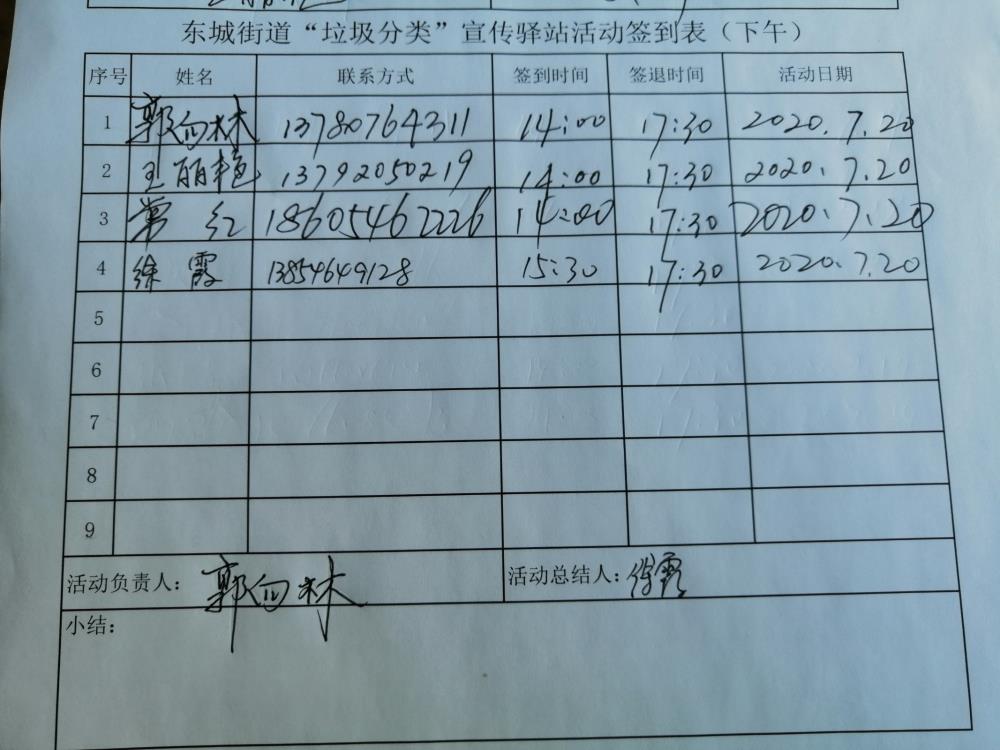 东城街道“垃圾分类”宣传驿站活动签到表（下午）
序号 姓名 联系方式 签到时间 签退时间 活动日期
1 郭向林 13780764311 14:00 17:30 2020.7.20
2 王丽艳 13792050219 14:00 17:30 2020.7.20
3 常红 18605462226 14:00 17:30 2020.7.20
4 徐霞 13854649128 15:30 17:30 2020.7.20
5
6
7
8
9
活动负责人：郭向林 活动总结人：徐霞
小结：